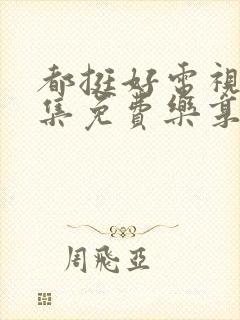 都挺好电視
集免費樂章
周飛亞